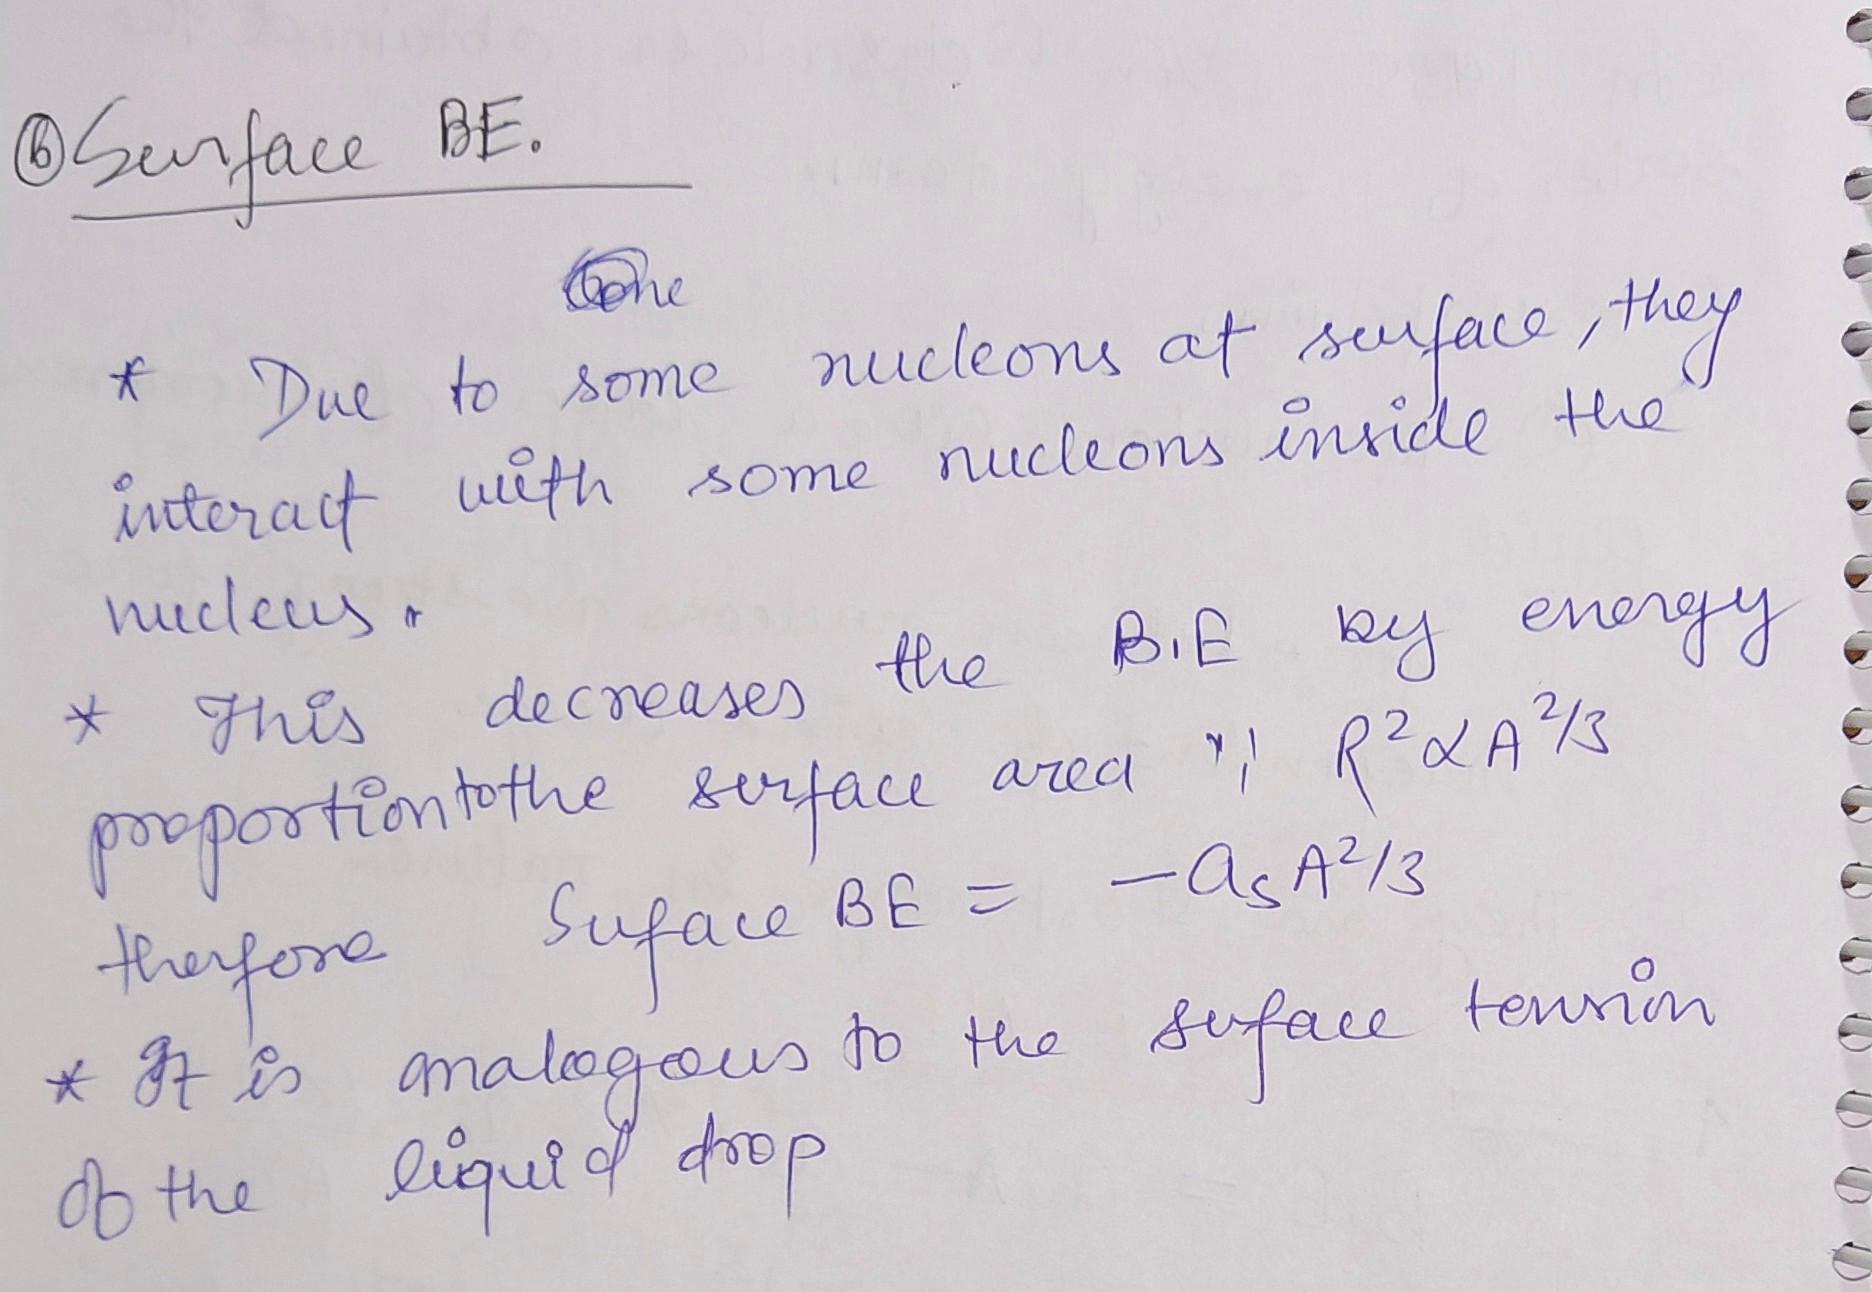 ⑥ Surface BE.
One
* Due to some nucleons at surface, they
interact with some nucleons inside the
nucleus.
* This decreases the B.E by energy
proportion to the surface area ; R²αA^2/3
therfore Suface BE = -aₛA^2/3
* It is analogous to the suface tension
of the liquid drop